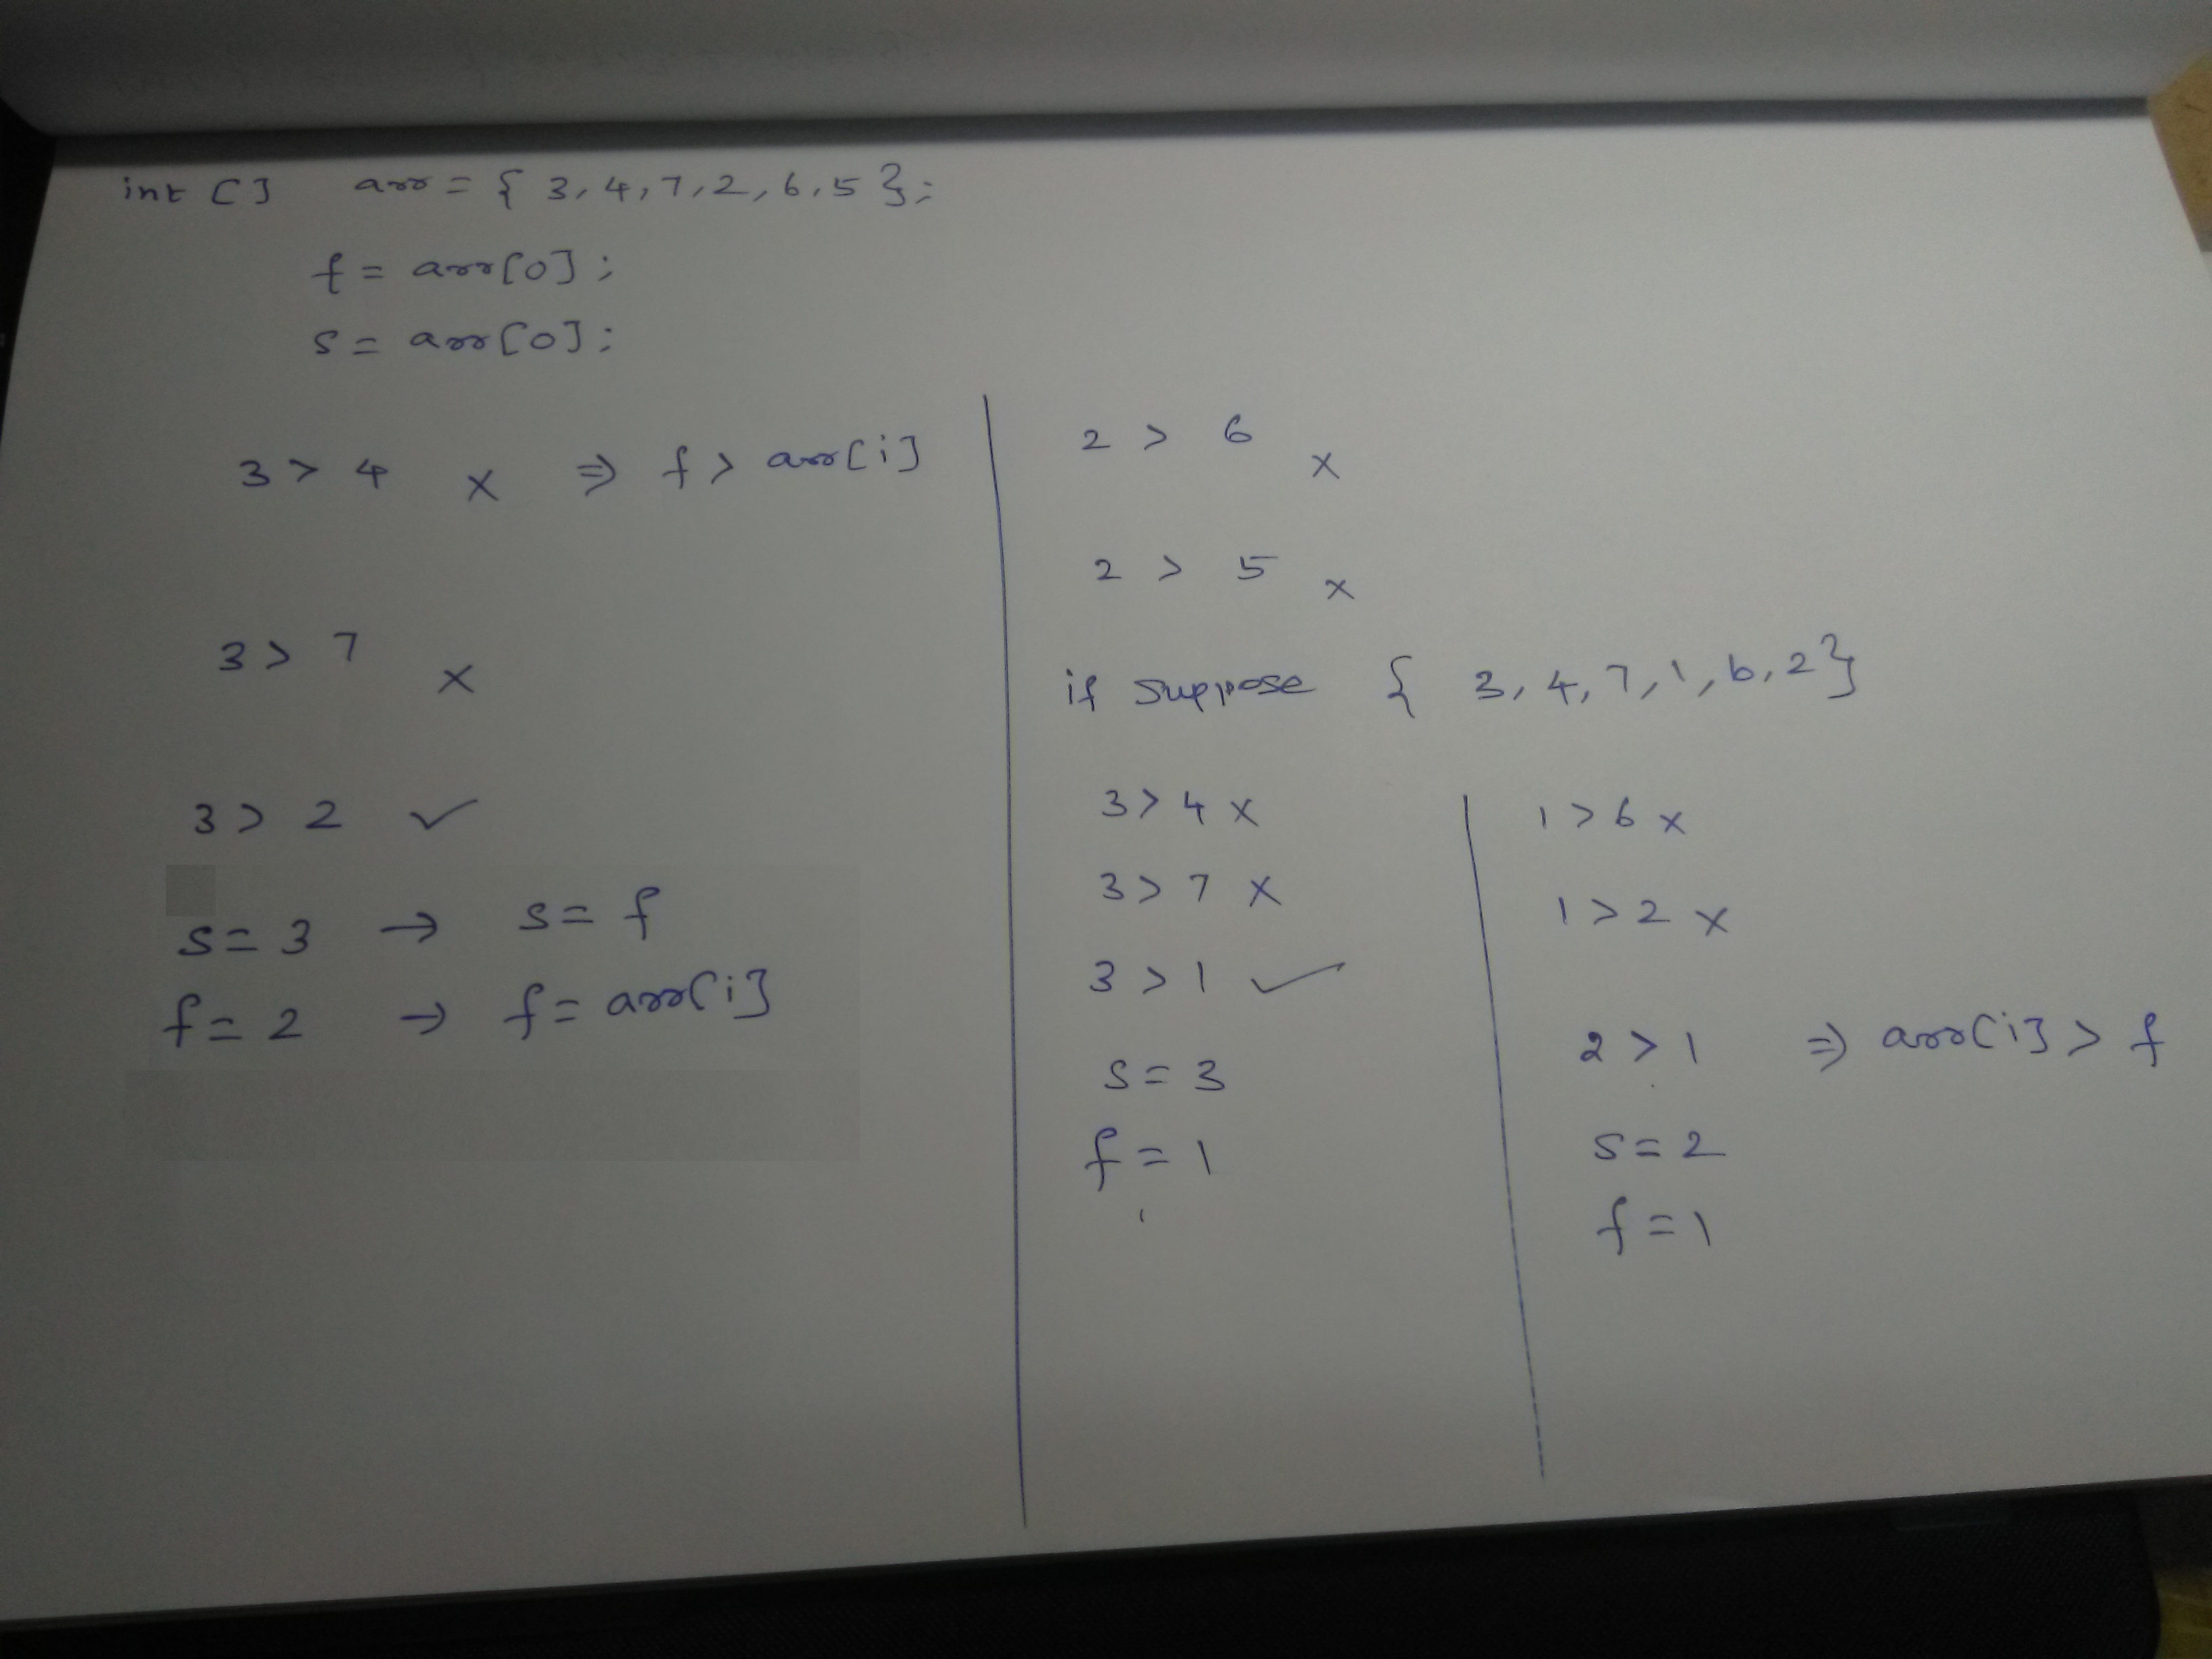 int [] arr = { 3, 4, 7, 2, 6, 5 };
f = arr[0];
s = arr[0];
3 > 4 x ⇒ f > arr[i]
3 > 7 x
3 > 2 ✓
s = 3 → s = f
f = 2 → f = arr[i]
2 > 6 x
2 > 5 x
if suppose { 3, 4, 7, 1, 6, 2 }
3 > 4 x
3 > 7 x
3 > 1 ✓
s = 3
f = 1
1 > 6 x
1 > 2 x
2 > 1 ⇒ arr[i] > f
s = 2
f = 1